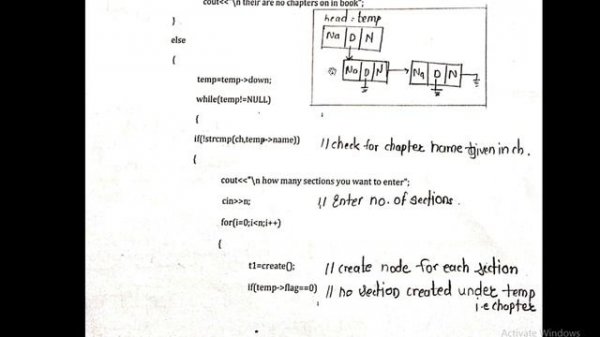 cout<<"\n their are no chapters on in book";
}
else
{
head = temp
Na D N
Na D N
Na D N
temp=temp->down;
while(temp!=NULL)
{
if(!strcmp(ch,temp->name)) //check for chapter name given in ch.
{
cout<<"\n how many sections you want to enter";
cin>>n; // Enter no. of sections.
for(i=0;i<n;i++)
{
t1=create(); // create node for each section
if(temp->flag==0) // no section created under temp
i.e chapter
Activate Windows